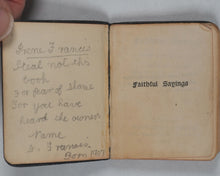 Irene Francis
Steal not this
book
For fear of shame
For you have
heard the owners
Name
I. Francis
Born 1907
Faithful Sayings